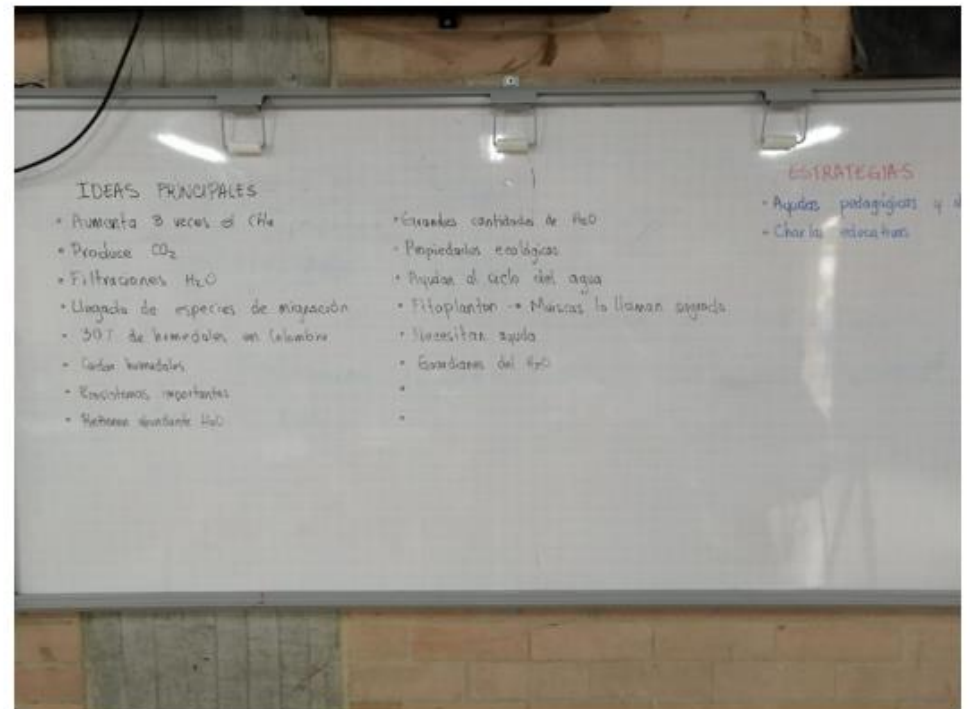 IDEAS PRINCIPALES
• Aumenta 3 veces el CH4
• Produce CO2
• Filtraciones H2O
• Llegada de especies de migración
• 30% de humedales en Colombia
• Cuidar humedales
• Ecosistemas importantes
• Retienen abundante H2O
• Grandes cantidades de H2O
• Propiedades ecológicas
• Ayudan al ciclo del agua
• Fitoplanton → Muiscas lo llaman
• Necesitan ayuda
• Guardianes del H2O
•
•
ESTRATEGIAS
• Ayudas pedagógicas y
• Charlas educativas